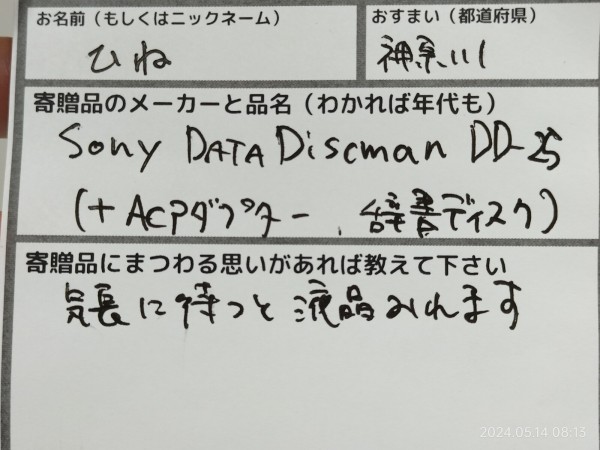 お名前(もしくはニックネーム)
おすまい(都道府県)
ひね
神奈川
寄贈品のメーカーと品名(わかれば年代も)
Sony DATA Discman DD-25
(+ACPダプター、辞書ディスク)
寄贈品にまつわる思いがあれば教えて下さい
気長に待つと液晶みれます
2024.05.14 08:13